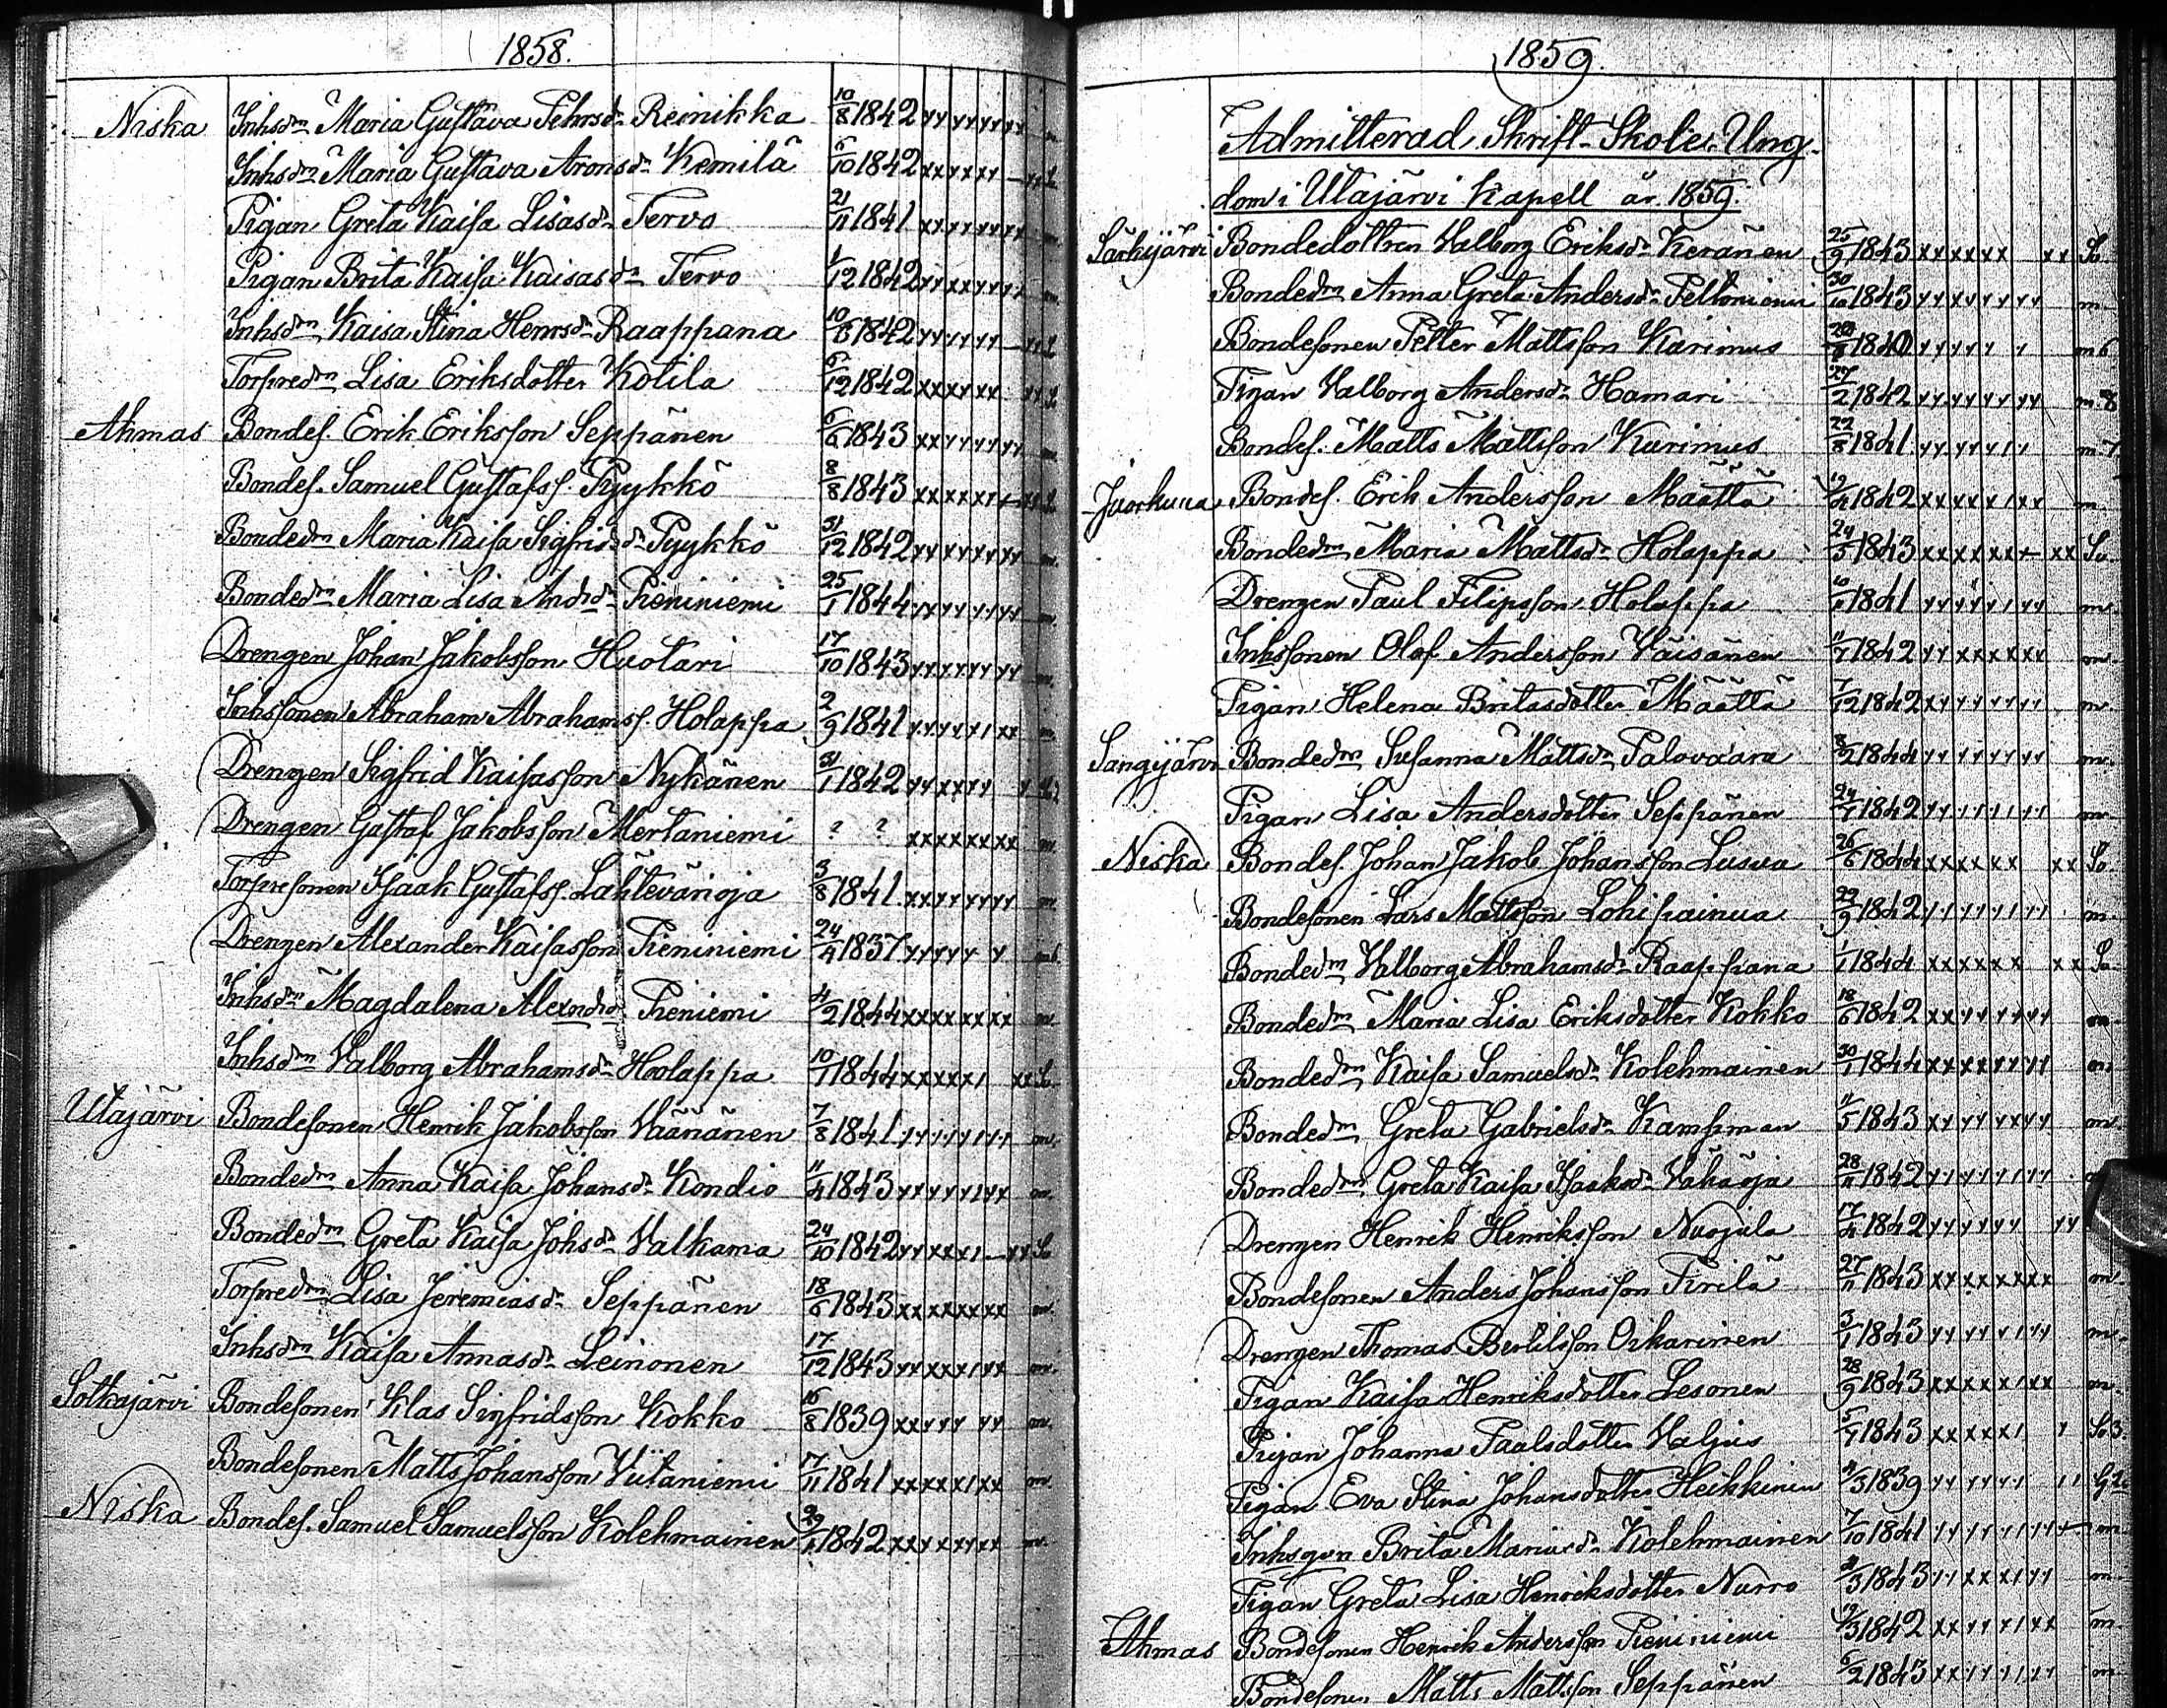 1858.
Niska Inhsdrn Maria Gustava Pehrsdr Reinikka 10/8 1842
Inhsdrn Maria Gustava Aronsdr Kemilä 5/10 1842
Pigan Greta Kaisa Lisasdr Tervo 21/11 1841
Pigan Brita Kaisa Kaisasdn Tervo 1/12 1842
Inhsdrn Kaisa Stina Henrsdr Raappana 10/6 1842
Torpredrn Lisa Eriksdotter Kotila 6/12 1842
Ahmas Bondes. Erik Eriksson Seppänen 6/6 1843
Bondes. Samuel Gustafss. Pyykkö 8/8 1843
Bondedrn Maria Kaisa Sigfrisdr Pyykkö 31/12 1842
Bondedrn Maria Lisa Andrsdr Pieniniemi 25/1 1844
Drengen Johan Jakobsson Huotari 17/10 1843
Inhssonen Abraham Abrahamss. Holappa 2/9 1841
Drengen Sigfrid Kaisasson Nykänen 31/1 1842
Drengen Gustaf Jakobsson Mertaniemi ? ?
Torpresonen Isaak Gustafss. Lahtevänoja 3/8 1841
Drengen Alexander Kaisasson Pieniniemi 24/4 1837
Inhsdrn Magdalena Alexndrdr Pieniemi 4/2 1844
Inhsdrn Valborg Abrahamsdr Holappa 10/1 1844
Utajärvi Bondesonen Henrik Jakobsson Väänänen 7/8 1841
Bondedrn Anna Kaisa Johansdr Kondio 11/4 1843
Bondedrn Greta Kaisa Johsdr Valkama 24/10 1842
Torpredrn Lisa Jeremiasdr Seppänen 18/6 1843
Inhsdrn Kaisa Annasdr Leinonen 17/12 1843
Sotkajärvi Bondesonen Klas Sigfridsson Kokko 16/8 1839
Bondesonen Matts Johansson Viitaniemi 17/11 1841
Niska Bondes. Samuel Samuelsson Kolehmainen 29/1 1842
1859.
Admitterad Skrift-Skole-Ung-
dom i Utajärvi Kapell år 1859.
Särkijärvi Bondedottren Valborg Eriksdr Keränen 25/9 1843
Bondedrn Anna Greta Andersdr Peltoniemi 30/10 1843 m
Bondesonen Petter Mattsson Karimus 1840 m 6
Pigan Valborg Andersdr Hamari 27/2 1842 m. 8
Bondes. Matts Mattsson Karimus 22/8 1841 m. 7
Juorkuna Bondes. Erik Andersson Määttä 19/4 1842 m.
Bondedrn Maria Mattsdr Holappa 24/5 1843
Drengen Paul Filipsson Holappa 1841 m.
Inhssonen Olof Andersson Väisänen 11/7 1842 m.
Pigan Helena Britasdotter Määttä 7/12 1842 m.
Sangijärvi Bondedrn Susanna Mattsdr Palovaara 8/2 1844 m.
Pigan Lisa Andersdotter Seppänen 24/7 1842 m.
Niska Bondes. Johan Jakob Johansson Lusua 26/6 1844
Bondesonen Lars Mattsson Lohipainua 22/9 1842 m.
Bondedrn Valborg Abrahamsdr Raappana 1/1 1844
Bondedrn Maria Lisa Eriksdotter Kokko 18/6 1842 m.
Bondedrn Kaisa Samuelsdr Kolehmainen 30/1 1844 m.
Bondedrn Greta Gabrielsdr Kampman 11/5 1843 m.
Bondedrn Greta Kaisa Isaaksdr Vähäoja 28/11 1842
Drengen Henrik Henriksson Nuojula 17/4 1842
Bondesonen Anders Johansson Pirilä 27/11 1843 m
Drengen Thomas Bertilsson Oikarinen 3/1 1843 m.
Pigan Kaisa Henriksdotter Lesonen 28/9 1843 m.
Pigan Johanna Paalsdotter Valjus 5/7 1843
Pigan Eva Stina Johansdotter Heikkinen 4/3 1839
Inhsqvn Brita Mariasdr Kolehmainen 7/10 1841 m.
Pigan Greta Lisa Henriksdotter Nurro 4/3 1843 m.
Ahmas Bondesonen Henrik Andersson Pieniniemi 19/3 1842 m.
Bondesonen Matts Mattsson Seppänen 6/2 1843 m.